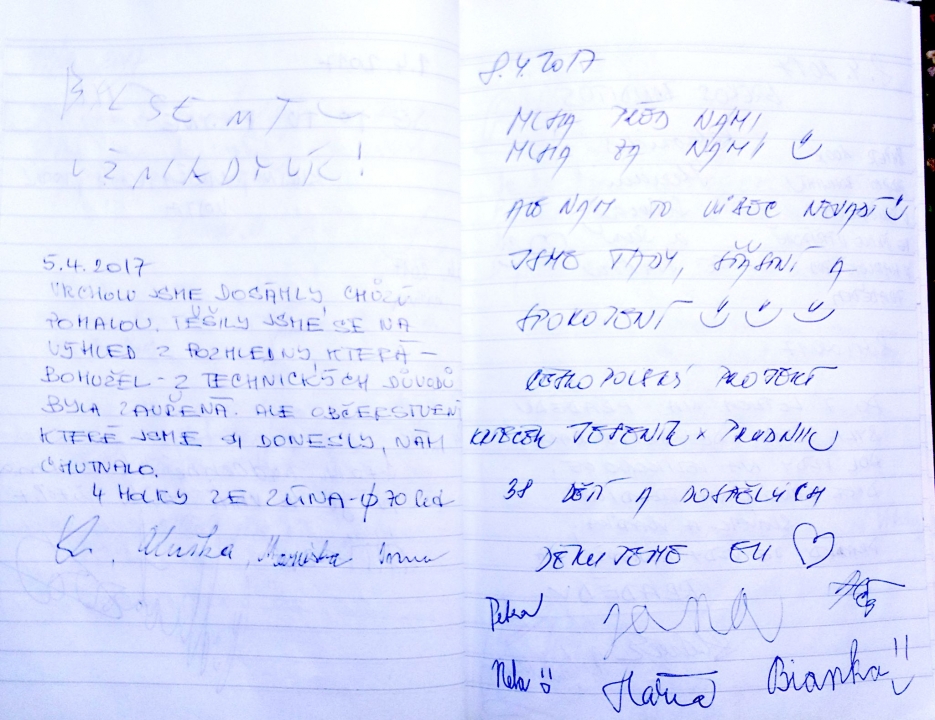 BYL SEM TU
UŽ NKADYLÍK!
5.4.2017
VRCHOLU JSME DOSÁHLY CHŮZÍ
POMALOU. TĚŠILY JSME SE NA
VÝHLED Z ROZHLEDNY, KTERÁ –
BOHUŽEL – Z TECHNICKÝCH DŮVODŮ
BYLA ZAVŘENÁ. ALE OBČERSTVENÍ
KTERÉ JSME SI DONESLY, NÁM
CHUTNALO.
4 HOLKY ZE ZLÍNA – ϕ 70 let
Maruška
8.4.2017
MLHA PŘED NÁMI
MLHA ZA NÁMI
ALE NÁM TO VŮBEC NEVADÍ
JSME TADY, ŠŤASNÍ A
SPOKOJENÍ
ČESKOPOLSKÝ PROJEKT
KŘEČEK JESENÍK × PRUDNIK
38 DĚTÍ A DOSPĚLÝCH
DĚKUJEME EU
Petra
Jana
Nela
Hana
Bianka